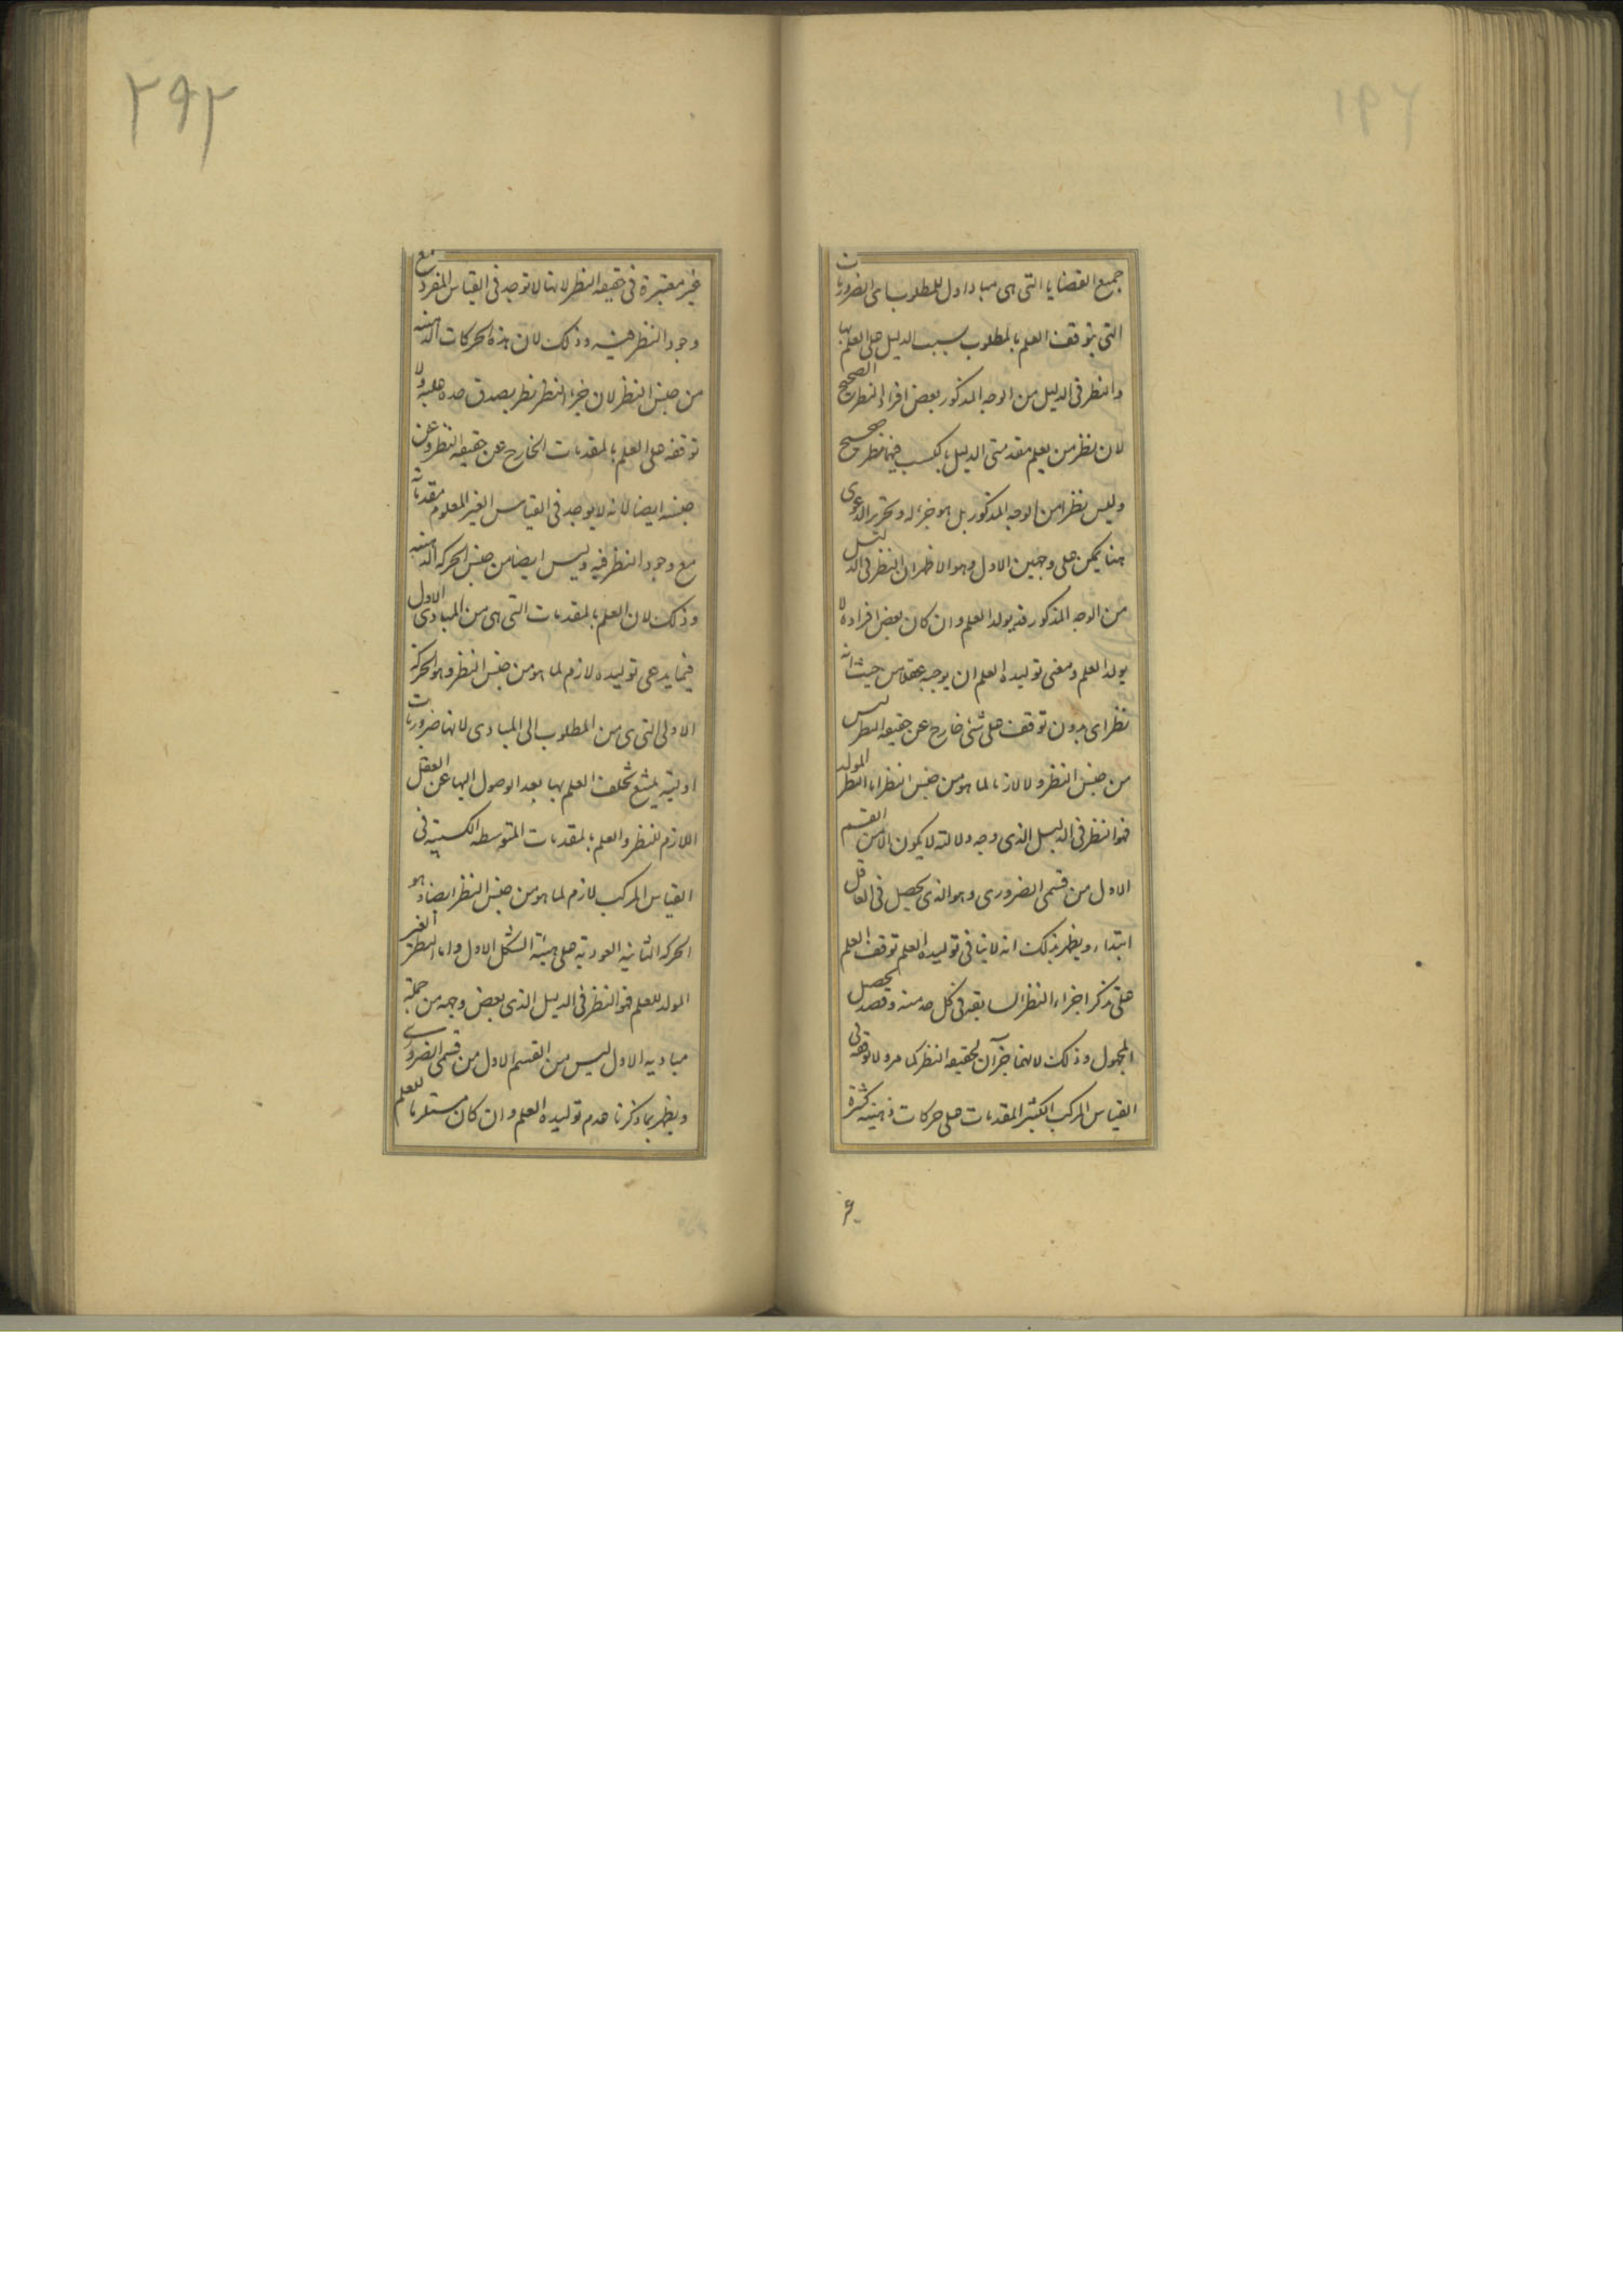 ١٩٦
جميع القضايا التى هى مباد اول للمطلوب اى الضروريات
التى يتوقف العلم بالمطلوب بسبب الدليل على العلم بها
والنظر فى الدليل من الوجه المذكور بعض افراد النظر الصحيح
لان نظر من يعلم مقدمتى الدليل بالكسب فيهما نظر صحيح
وليس نظرا من الوجه المذكور بل هو جزء له وتحرير الدعوى
هنا يمكن على وجهين الاول وهو الاظهر ان النظر فى الدليل
من الوجه المذكور قد يولد العلم وان كان بعض افراده لا
يولد العلم ومعنى توليده العلم ان يوجبه عقلا من حيث انه
نظر اى بدون توقف على شئ خارج عن حقيقه النظر ليس
من جنس النظر ولا لازما لما هو من جنس النظر اما النظر المولد
فهو النظر فى الدليل الذى وجه دلالته لا يكون الا من القسم
الاول من قسمى الضرورى وهو الذى يحصل فى العاقل
ابتداء ويظهر بذلك انه لا ينافى توليده العلم توقف العلم
على تذكر اجزاء النظر السابقه فى كل حد منه وقصد تحصل
المجهول وذلك لانهما جزآن لحقيقه النظر كما مر ولا توقفه فى
القياس المركب الكثير المقدمات على حركات ذهنيه كثيرة
غير
٢٩٢
غير معتبرة فى حقيقه النظر لانها لا توجد فى القياس المفرد مع
وجود النظر فيه وذلك لان هذه الحركات الذهنيه
من جنس النظر لان جزء النظر نظر يصدق حده عليه ولا
توقفه على العلم بالمقدمات الخارج عن حقيقه النظر وعن
جنسه ايضا لانه لا يوجد فى القياس الغير المعلوم مقدماته
مع وجود النظر فيه وليس ايضا من جنس الحركه الذهنيه
وذلك لان العلم بالمقدمات التى هى من المبادى الاول
فيما يدعى توليده لازم لما هو من جنس النظر وهو الحركة
الاولى التى هى من المطلوب الى المبادى لانها ضروريات
اوليه يمتنع تخلف العلم بها بعد الوصول اليها عن العقل
اللازم للنظر والعلم بالمقدمات المتوسطه الكسبيه فى
القياس المركب لازم لما هو من جنس النظر ايضا وهو
الحركه الثانيه العوديه على هيئة الشكل الاول واما النظر الغير
المولد للعلم فهو النظر فى الدليل الذى بعض وجهه من جملة
مباديه الاول ليس من القسم الاول من قسمى الضرورى
ويظهر بما ذكرنا عدم توليده العلم وان كان مستلزما للعلم